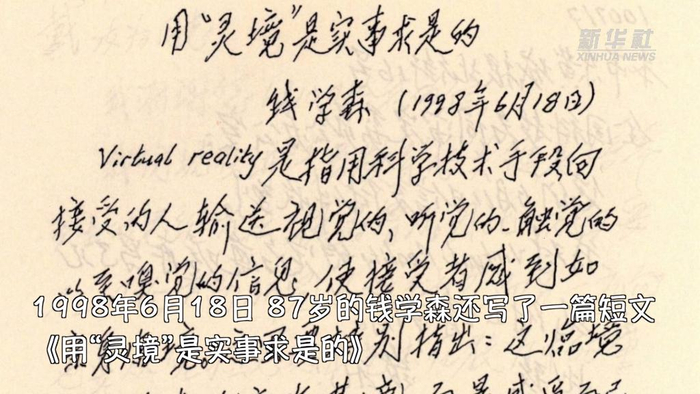 新华社
XINHUA NEWS
用“灵境”是实事求是的
钱学森（1998年6月18日）
Virtual reality是指用科学技术手段向
接受的人输送视觉的、听觉的、触觉的
以至嗅觉的信息，使接受者感到如
别指出：这临境
1998年6月18日 87岁的钱学森还写了一篇短文
《用“灵境”是实事求是的》